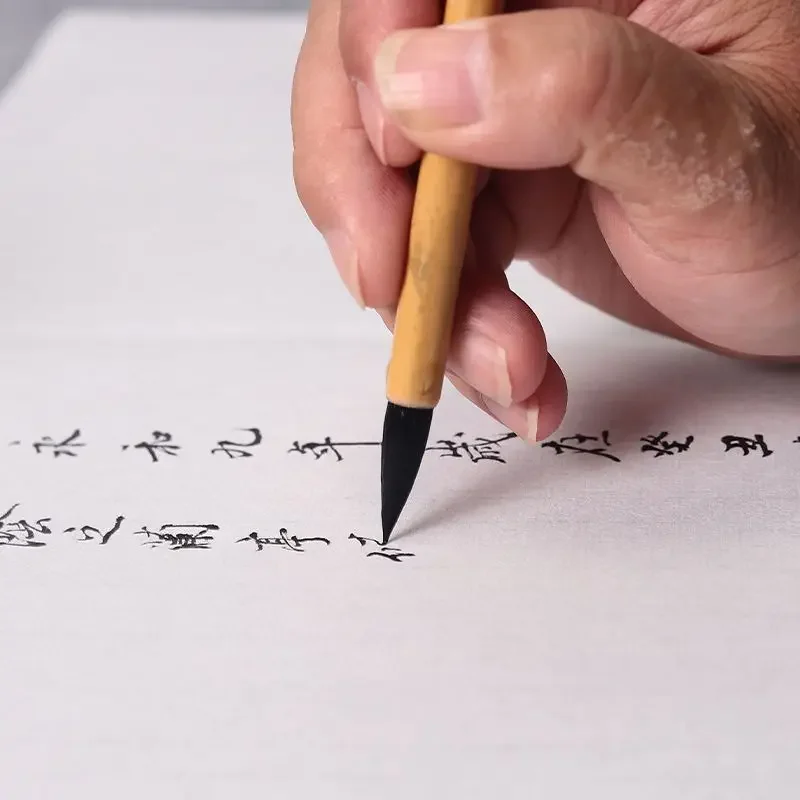 永和九年歲在癸丑
陰之蘭亭